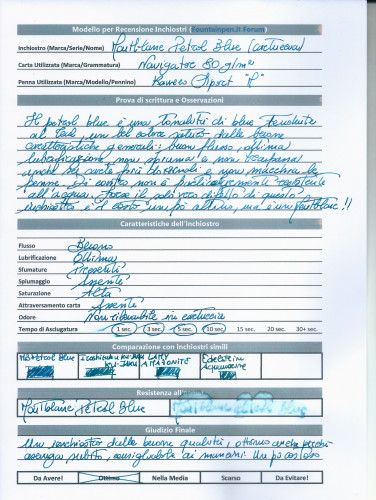 Modello per Recensione Inchiostri (Fountainpen.it Forum)
Inchiostro (Marca/Serie/Nome) Montblanc Petrol Blue (cartuccia)
Carta Utilizzata (Marca/Grammatura) Navigator 80 g/m²
Penna Utilizzata (Marca/Modello/Pennino) Kaweco Sport "M"
Prova di scrittura e Osservazioni
Il petrol blue è una tonalità di blue tendente
al teal, un bel colore saturo dalle buone
caratteristiche generali: buon flusso, ottima
lubrificazione, non spiuma e non trapassa
anche su carte più
penne. Di contro non è resistente
all'acqua. Forse il solo difetto di questo
inchiostro è il costo un pò altino, ma è un Montblanc!!
Caratteristiche dell'inchiostro
Flusso Buono
Lubrificazione Ottima
Sfumature Presenti
Spiumaggio Assente
Saturazione Alta
Attraversamento carta Assente
Odore Non rilevabile in cartuccia
Tempo di Asciugatura 1 sec. 3 sec. 5 sec. 10 sec. 15 sec. 20 sec. 30+ sec.
Comparazione con inchiostri simili
MB Petrol Blue Iroshizuku Ku-Jaku LAMY AMAZONITE Edelstein Aquamarine
Resistenza all'acqua
Montblanc Petrol Blue
Giudizio Finale
Un inchiostro dalle buone qualità, ottimo anche perchè
asciuga subito, consigliabile ai mancini. Un pò costoso
Da Avere! Ottimo Nella Media Scarso Da Evitare!